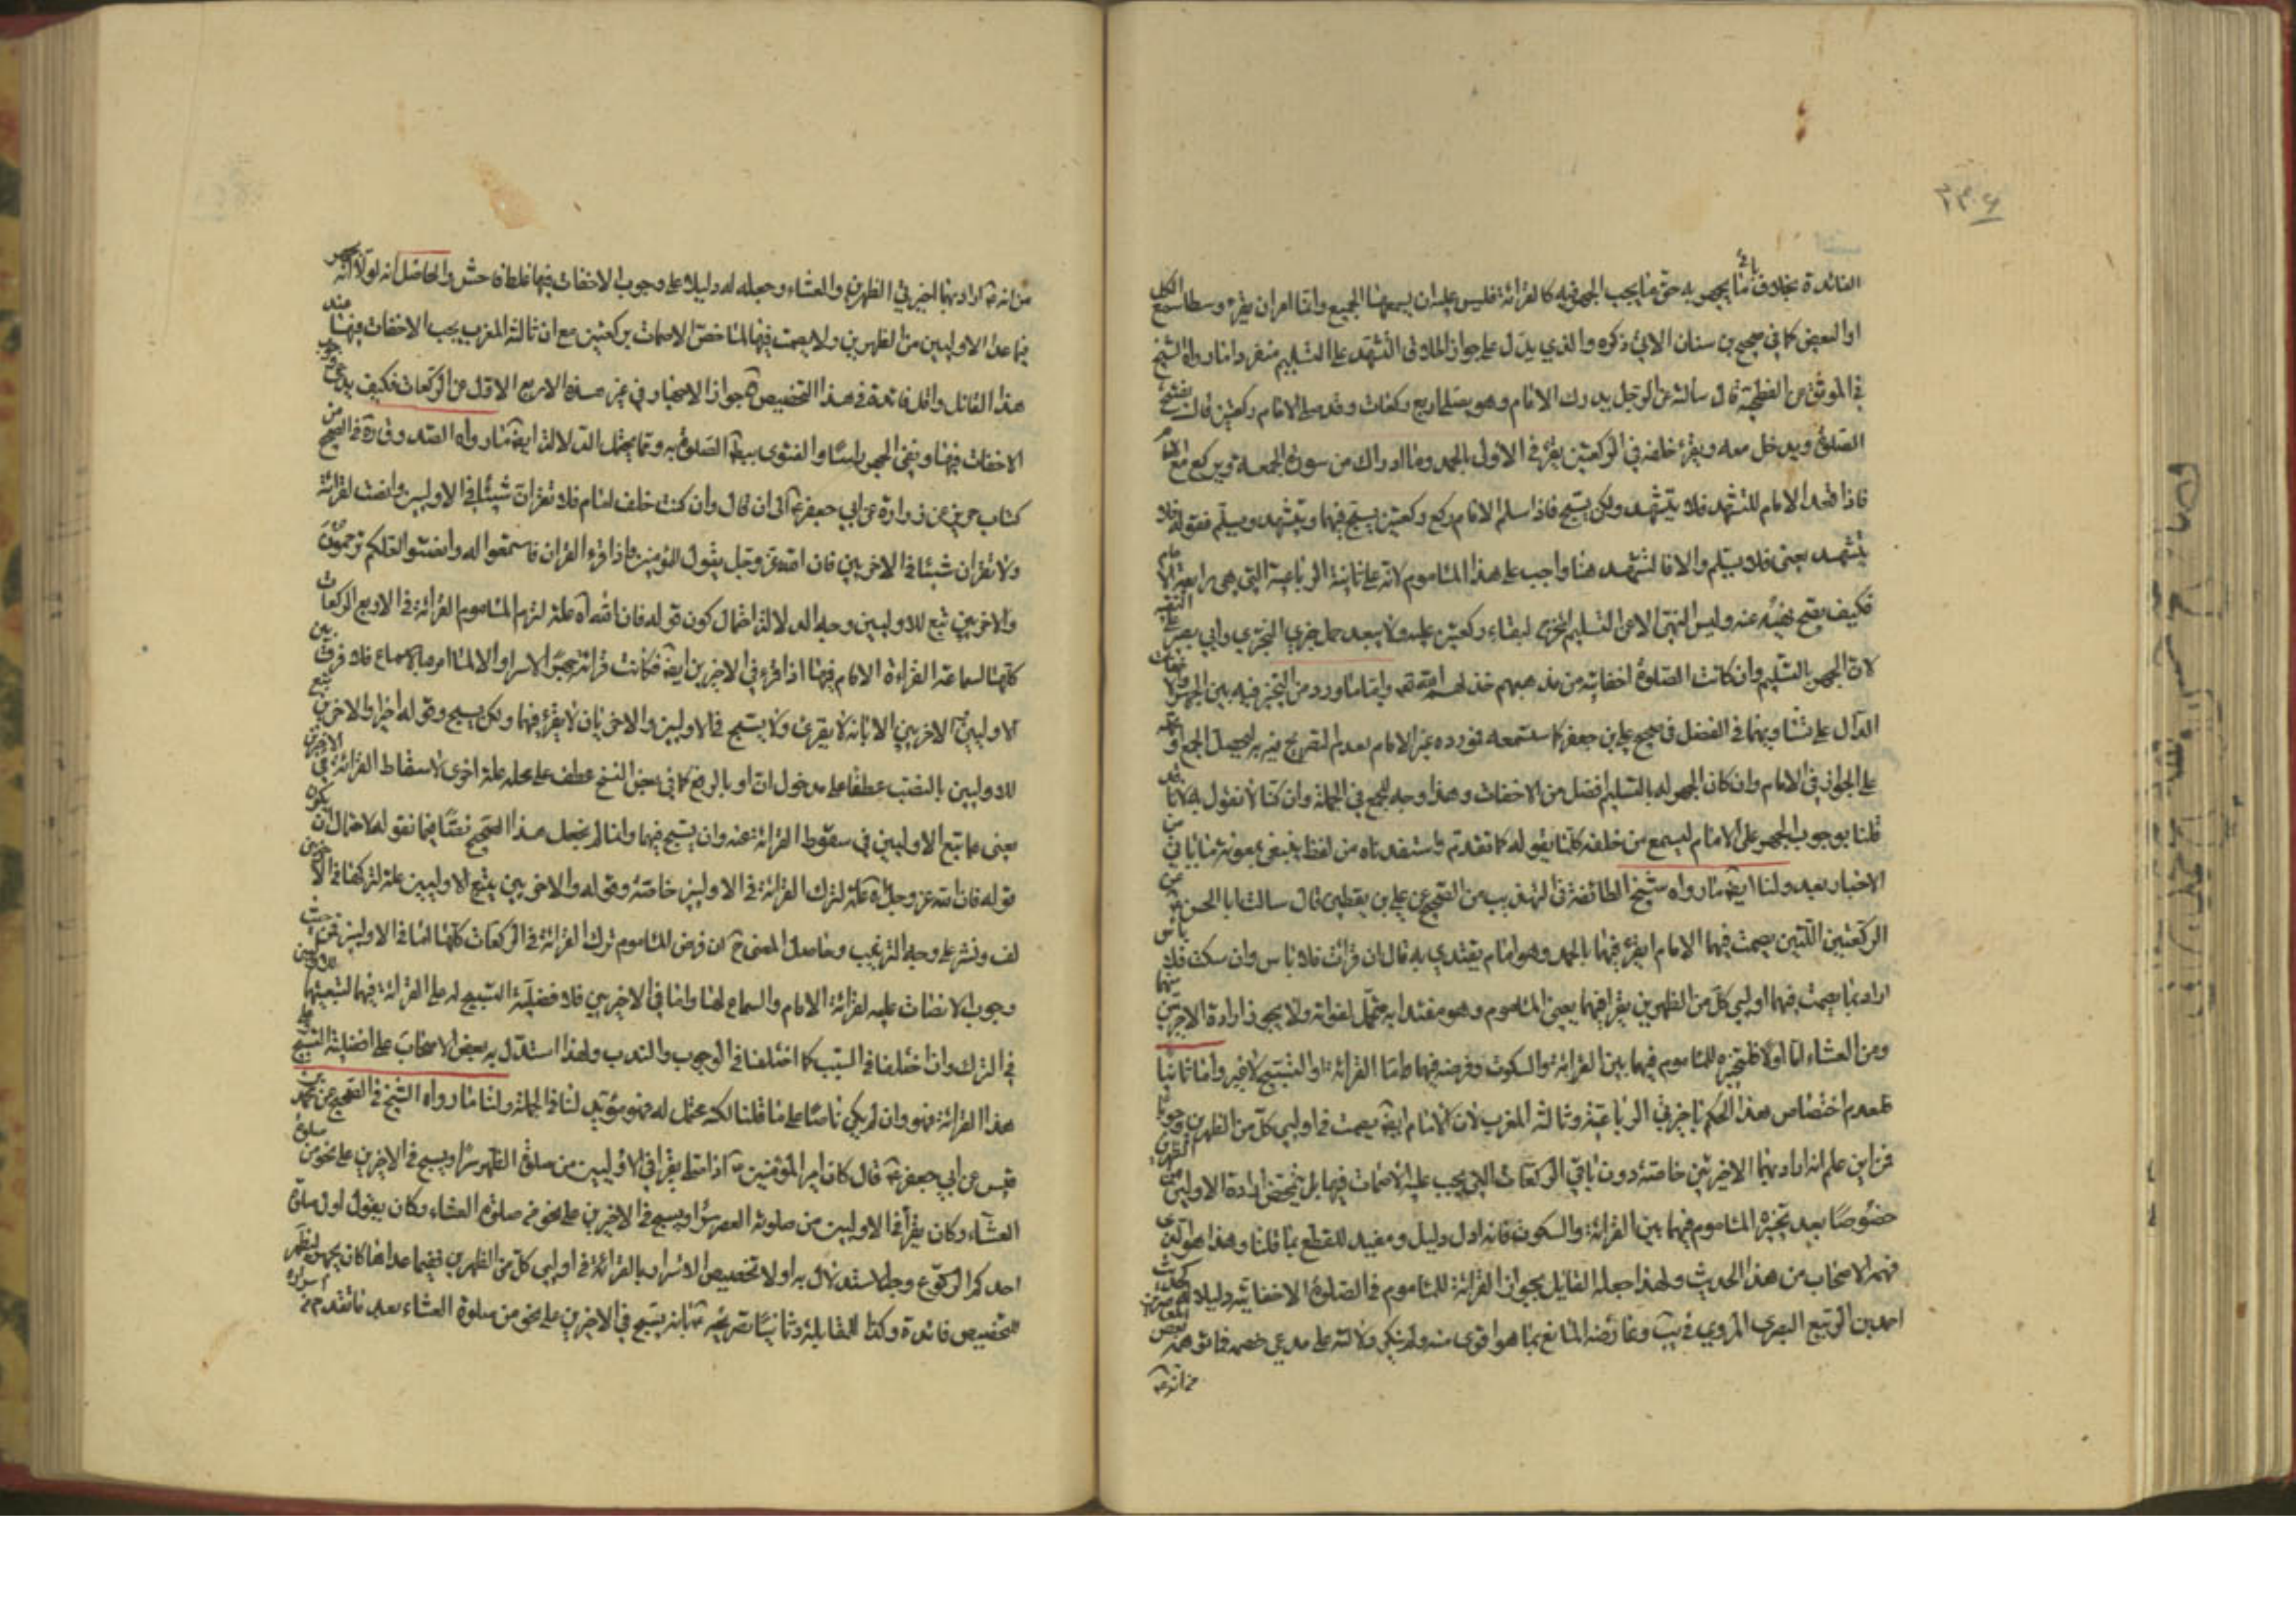 ٢٣۶
الفائدة بخلاف باقي ما يجهر به حتى ما يجب الجهر فيه كالقرائة فليس عليه ان يسمعها الجميع وانما امر ان يقرء وسطا سمع الكل
او البعض كما في صحيح بن سنان الاتي ذكره والذي يدل على جواز الملاو في التشهد على التسليم منفردا ما رواه الشيخ
في الموثق عن الفطحية قال سألته عن الرجل يدرك الامام وهو يصلي اربع ركعات وقد صلى الامام ركعتين قال يفتتح
الصلوة ويدخل معه ويقرء خلفه في الركعتين يقرء في الاولى الحمد وما ادرك من سورة الجمعة ويركع مع الامام
فاذا قعد الامام للتشهد فلا يتشهد ولكن يسبح فاذا سلم الامام ركع ركعتين يسبح فيهما ويتشهد ويسلم فقوله فلا
يتشهد يعني فلا يسلم والا فالتشهد هنا واجب على هذا المأموم لانه على ثانية الرباعية التي هي رابعة الامام
فكيف يصح نفيه عنه وليس النهي الا عن التسليم المخرج لبقاء ركعتين عليه ولا يبعد حمل خبري البختري وابي بصير على التقية
لان الجهر بالتسليم وان كانت الصلوة اخفاتية من مذهبهم خذلهم الله تعالى واما ما ورد من التخيير فيه بين الجهر والاخفات
الدال على تساويهما في الفضل في صحيح علي بن جعفر كما ستسمعه فورده غير الامام بعدم التصريح فيه به ليحصل الجمع او نحمله
على الجواز في الامام وان كان الجهر له بالتسليم افضل من الاخفات وهذا وجه للجمع في الجملة وان كنا لا نقول به لانا قد
قلنا بوجوب الجهر على الامام ليسمع من خلفه كلما يقوله كما تقدم واستفدناه من لفظ ينبغي بمعونة ما ياتي من
الاخبار بعد ولنا ايضا ما رواه شيخ الطائفة في التهذيب من الصحيح عن علي بن يقطين قال سالت ابا الحسن عن
الركعتين اللتين يصمت فيهما الامام ايقرء فيهما بالحمد وهو امام يقتدى به قال ان قرات فلا باس وان سكت فلا باس
اراد بما يصمت فيهما اوليي كل من الظهرين يقرا فيهما يعني المأموم وهو مقتدا به متحمل لقراته ولا يجوز ارادة الاخيرتين منهما
ومن العشاء اما اولا فلتخييره للمأموم فيهما بين القرائة والسكوت وفرضه فيهما اما القرائة او التسبيح لا غير واما ثانيا
فلعدم اختصاص هذا الحكم باخيرتي الرباعية وثالثة المغرب لان الامام ايضا يصمت في اوليي كل من الظهرين وجوبا
فمن اين علم انه اراد بهما الاخيرتين خاصة دون باقي الركعات التي يجب عليه الاصمات فيها بل يتمحض ارادة الاوليين من الظهرين
خصوصا بعد تخييره المأموم فيهما بين القرائة والسكوت فانه ادل دليل ومفيد للقطع بما قلنا وهذا هو الذي
فهم الاصحاب من هذا الحديث ولهذا جعله القايل بجواز القرائة للمأموم في الصلوة الاخفاتية دليلا له
احمد بن الربيع البصري المروي في يب وعارضه المانع بما هو اقوى منه ولم ينكر دلالته على مدعى خصمه فما توهمه
من انه
من انه اراد بهما اخيرتي الظهرين والعشاء وجعله له دليلا على وجوب الاخفات فيها غلط فاحش والحاصل انه لولا انه
فيما عدا الاوليين من الظهرين ولا يصمت فيهما لما خص الاصمات بركعتين مع ان ثالثة المغرب يجب الاخفات فيها عند
هذا القائل واقل فائدة في هذا التخصيص جواز الاجهار في غير هذه الاربع الاول من الركعات فكيف يدعي وجوب
الاخفات فيها وينفي الجهر راسا والفتوى ببطلان الصلوة به ومما يحتمل الدلالة ايضا ما رواه الصدوق في الصحيح من
كتاب حريز عن زرارة عن ابي جعفر الى ان قال وان كنت خلف امام فلا تقران شيئا في الاوليين وانصت لقرائته
ولا تقران شيئا في الاخريين فان الله عز وجل يقول للمؤمنين واذا قرء القران فاستمعوا له وانصتوا لعلكم ترحمون
والاخريين تبع للاوليين وجه الدلالة احتمال كون قوله فان الله اه علة لترك المأموم القرائة في الاربع الركعات
كلها لسماعه القراءة الامام فيها اذا قرء في الاخيرتين ايضا فكانت قرائته جهرا لا سرا والا لما امر بالاسماع فلا فرق بين
الاوليين والاخريين الا بانه لا يقرئ ولا يسبح في الاوليين والاخريان لا يقرء فيهما ولكن يسبح وقوله اخيرا والاخريين تبع
للاوليين بالنصب عطفا على مدخول ان او بالرفع كما في بعض النسخ عطف على محله علة اخرى لاسقاط القرائة في الاخيرتين
يعني هما تبع الاوليين في سقوط القرائة عنه وان يسبح فيهما وانما لم نجعل هذا الصحيح نصا فيما نقوله لاحتمال ان يكون
قوله فان الله عز وجل اه علة لترك القرائة في الاوليين خاصة وقوله والاخريين تبع الاوليين علة لتركها في الاخريين
لف ونشر على وجه الترتيب وحاصل المعنى ح ان فرض المأموم ترك القرائة في الركعات كلها اما في الاوليين فمن حيث
وجوب الانصات عليه لقرائة الامام والسماع لها واما في الاخريين فلا فضلية التسبيح له على القرائة فيهما لتبعيتهما للاوليين
في الترك وان اختلفا في السبب كما اختلفا في الوجوب والندب ولهذا استدل به بعض الاصحاب على افضلية التسبيح
هذا القرائة فهو وان لم يكن ناصا على ما قلنا لكنه محتمل له فهو مؤيد لنا في الجملة ولنا ما رواه الشيخ في الصحيح عن محمد بن
قيس عن ابي جعفر قال كان امير المؤمنين اذا صلى يقرا في الاوليين من صلوة الظهر سرا ويسبح في الاخرين على نحو من صلوة
العشاء وكان يقرأ في الاوليين من صلوة العصر سرا ويسبح في الاخيرتين على نحو من صلوة العشاء وكان يقول اول صلوة
احدكم الركوع وجه الاستدلال به اولا تخصيص الاسرار بالقرائة في اوليي كل من الظهرين ففيما عداها كان يجهر ليظهر
للتخصيص فائدة وكذا المقابلة وثانيا تصريحه بانه يسبح في الاخيرتين على نحو من صلوة العشاء بعد ما تقدم من اسراره